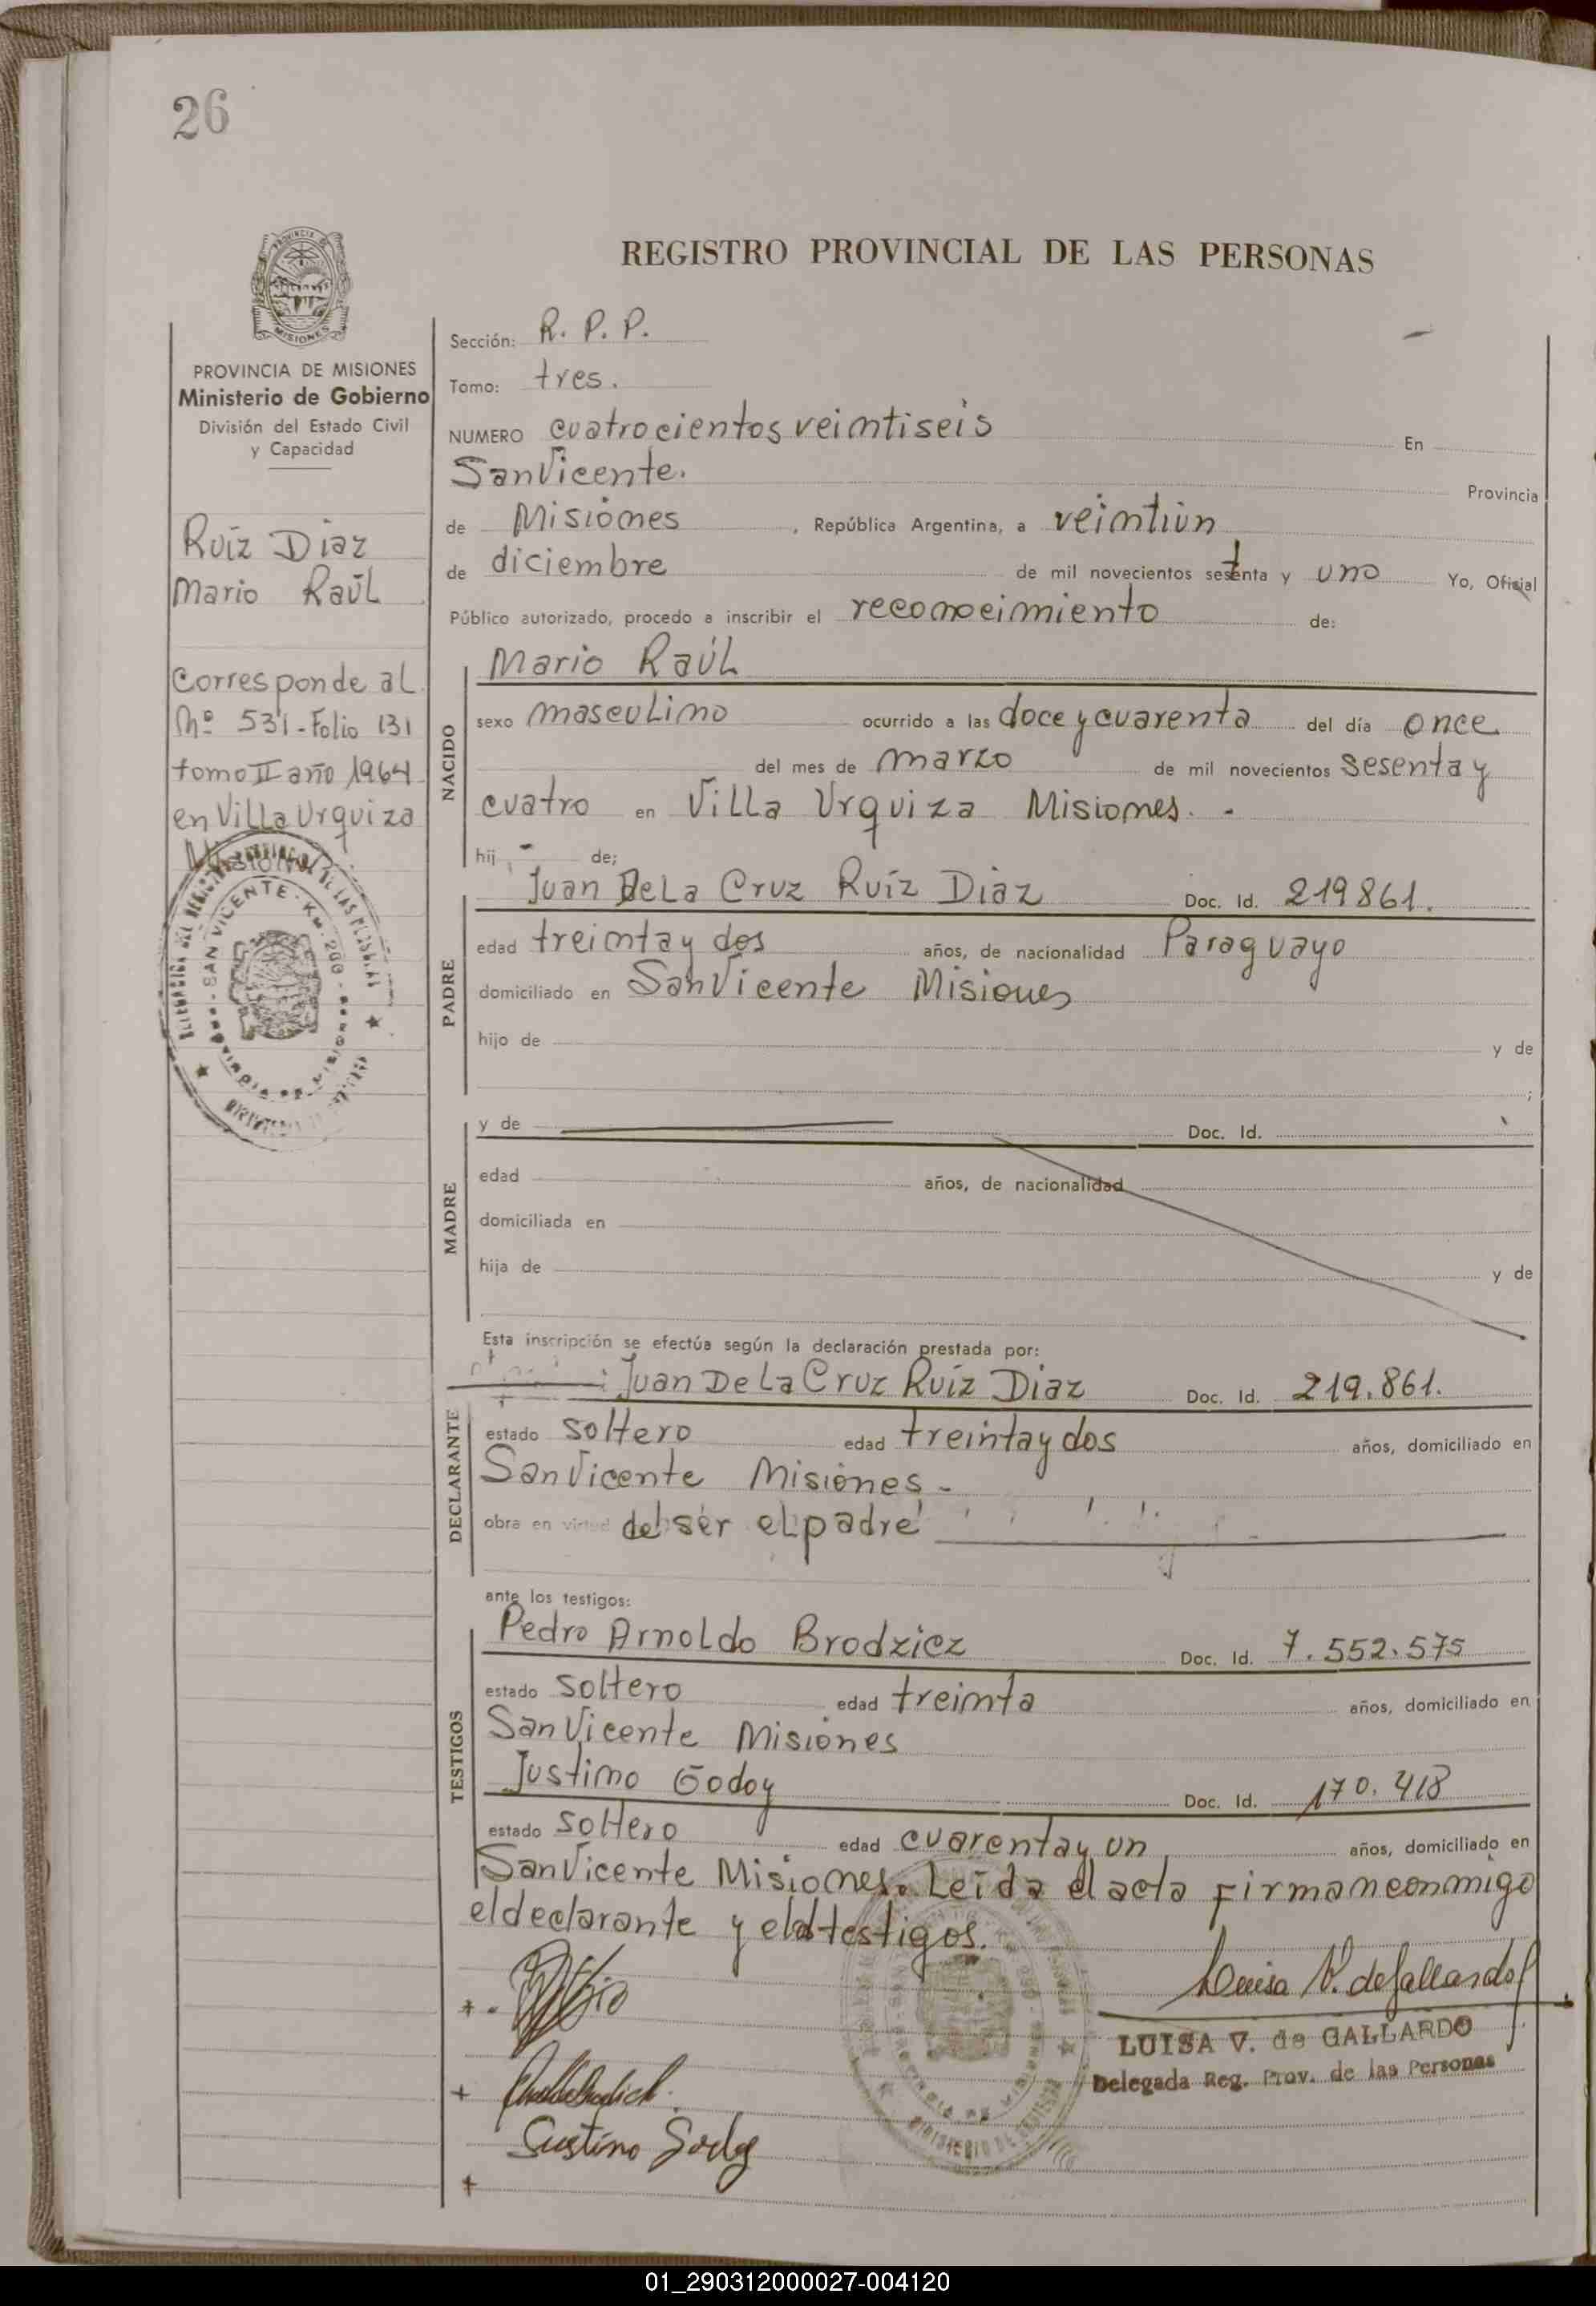 26
REGISTRO PROVINCIAL DE LAS PERSONAS
PROVINCIA DE MISIONES
Ministerio de Gobierno
División del Estado Civil
y Capacidad
Ruíz Díaz
Mario Raúl
Corresponde al
Nº 531-Folio 131
tomo II año 1964
en Villa Urquiza
Misiones
Sección: R. P. P.
Tomo: tres.
NUMERO cuatrocientos veintiseis En
San Vicente. Provincia
de Misiones, República Argentina, a veintiún
de diciembre de mil novecientos setenta y uno Yo, Oficial
Público autorizado, procedo a inscribir el reconocimiento de:
NACIDO
Mario Raúl
sexo masculino ocurrido a las doce y cuarenta del día once
del mes de marzo de mil novecientos sesenta y
cuatro en Villa Urquiza Misiones. -
hij - de;
PADRE
Juan De La Cruz Ruíz Díaz Doc. Id. 219861.
edad treinta y dos años, de nacionalidad Paraguayo
domiciliado en San Vicente Misiones
hijo de y de
;
MADRE
y de Doc. Id.
edad años, de nacionalidad
domiciliada en
hija de y de
Esta inscripción se efectúa según la declaración prestada por:
DECLARANTE
Juan De La Cruz Ruíz Díaz Doc. Id. 219.861.
estado soltero edad treinta y dos años, domiciliado en
San Vicente Misiones -
obra en virtud del ser el padre
ante los testigos:
TESTIGOS
Pedro Arnoldo Brodzicz Doc. Id. 7.552.575
estado soltero edad treinta años, domiciliado en
San Vicente Misiones
Justino Godoy Doc. Id. 170.418
estado soltero edad cuarenta y un años, domiciliado en
San Vicente Misiones. Leída el acta firman conmigo
el declarante y testigos.
Luisa V. de Gallardo
LUISA V. de GALLARDO
Delegada Reg. Prov. de las Personas
Justino Godoy
01_290312000027-004120